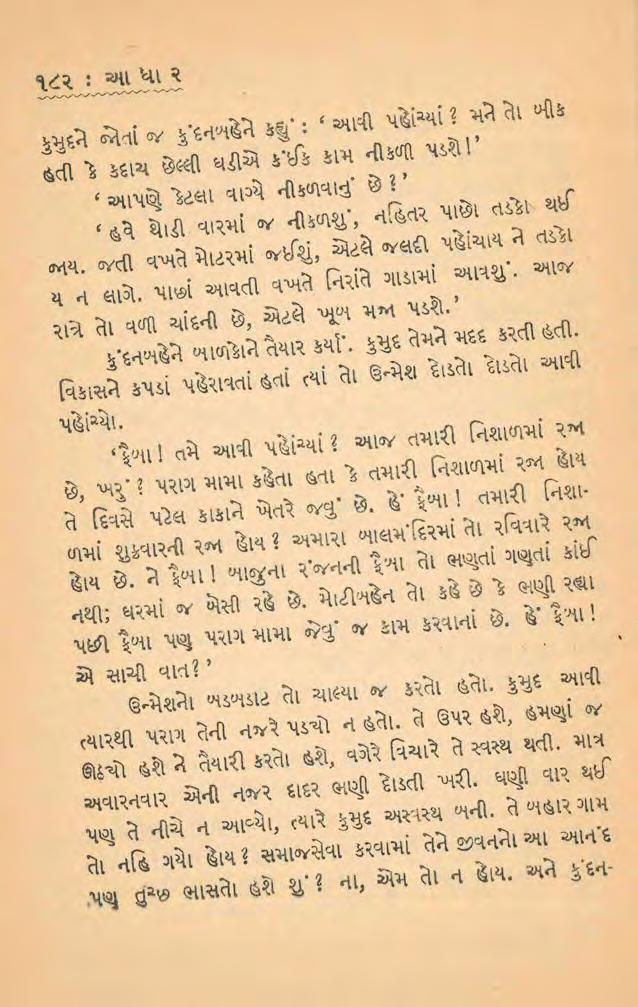 ૧૮૨ : આ ધા ર
કુમુદને જોતાં જ કુંદનબહેને કહ્યું : ‘ આવી પહોંચ્યાં ? મને તો બીક
હતી કે કદાચ છેલ્લી ઘડીએ કંઈક કામ નીકળી પડશે !’
‘ આપણે કેટલા વાગ્યે નીકળવાનું છે ?’
‘ હવે થોડી વારમાં જ નીકળશું, નહિતર પાછો તડકો થઈ
જાય. જતી વખતે મોટરમાં જઈશું, એટલે જલદી પહોંચાય ને તડકો
ય ન લાગે. પાછાં આવતી વખતે નિરાંતે ગાડામાં આવશું. આજ
રાત્રે તો વળી ચાંદની છે, એટલે ખૂબ મજા પડશે.’
કુંદનબહેને બાળકોને તૈયાર કર્યાં. કુમુદ તેમને મદદ કરતી હતી.
વિકાસને કપડાં પહેરાવતાં હતાં ત્યાં તો ઉન્મેશ દોડતો દોડતો આવી
પહોંચ્યો.
‘ફૈબા ! તમે આવી પહોંચ્યાં ? આજ તમારી નિશાળમાં રજા
છે, ખરું ? પરાગ મામા કહેતા હતા કે તમારી નિશાળમાં રજા હોય
તે દિવસે પટેલ કાકાને ખેતરે જવું છે. હેં ફૈબા ! તમારી નિશા-
ળમાં શુક્રવારની રજા હોય ? અમારા બાલમંદિરમાં તો રવિવારે રજા
હોય છે. ને ફૈબા ! બાજુના રંજનની ફૈબા તો ભણતાં ગણતાં કાંઈ
નથી; ઘરમાં જ બેસી રહે છે. મોટીબહેન તો કહે છે કે ભણી રહ્યા
પછી ફૈબા પણ પરાગ મામા જેવું જ કામ કરવાનાં છે. હેં ફૈબા !
એ સાચી વાત ?’
ઉન્મેશનો બડબડાટ તો ચાલ્યા જ કરતો હતો. કુમુદ આવી
ત્યારથી પરાગ તેની નજરે પડ્યો ન હતો. તે ઉપર હશે, હમણાં જ
ઊઠ્યો હશે ને તૈયારી કરતો હશે, વગેરે વિચારે તે સ્વસ્થ થતી. માત્ર
અવારનવાર એની નજર દાદર ભણી દોડતી ખરી. ઘણી વાર થઈ
પણ તે નીચે ન આવ્યો, ત્યારે કુમુદ અસ્વસ્થ બની. તે બહાર ગામ
તો નહિ ગયો હોય ? સમાજસેવા કરવામાં તેને જીવનનો આ આનંદ
પણ તુચ્છ ભાસતો હશે શું ? ના, એમ તો ન હોય. અને કુંદન-